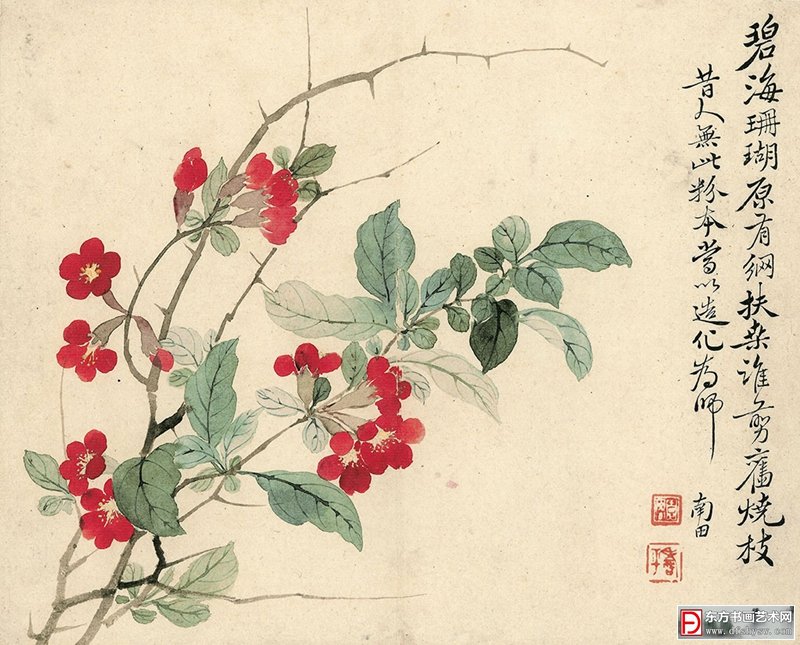 碧海珊瑚原有網扶桑誰剪舊燒枝
昔人無此粉本當以造化為師
南田
东方书画艺术网
www.dfshysw.com